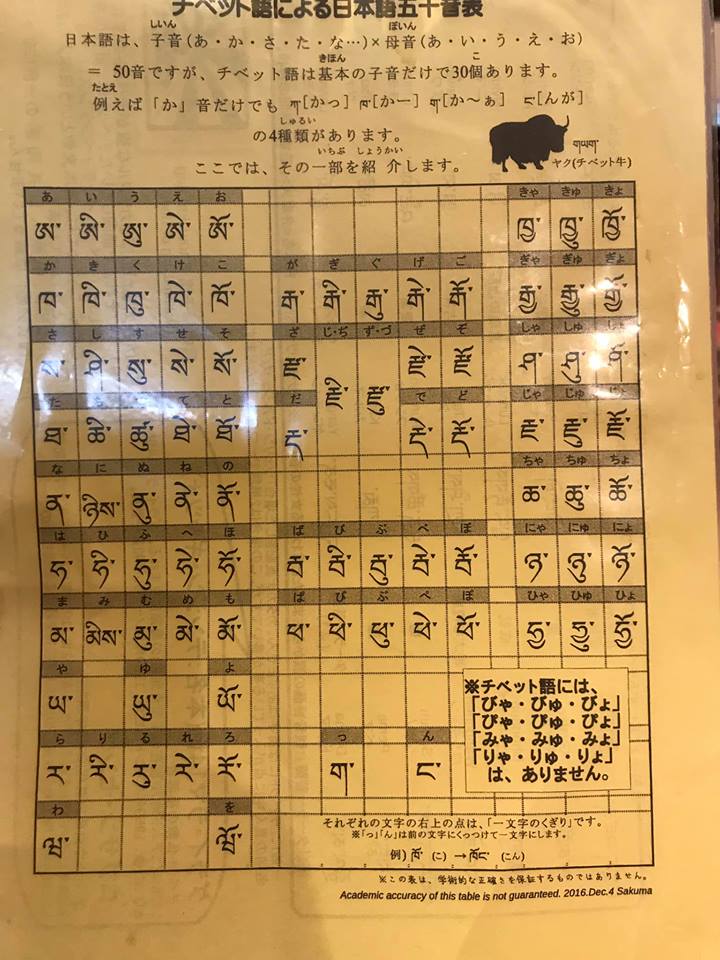 チベット語による日本語五十音表
日本語は、子音(あ・か・さ・た・な…)×母音(あ・い・う・え・お)
しいん ぼいん
= 50音ですが、チベット語は基本の子音だけで30個あります。
きほん こ
例えば「か」音だけでも ཀ[かっ] ཁ[かー] ག[か〜ぁ] ང[んが]
たとえ
の4種類があります。
しゅるい
ここでは、その一部を紹 介します。
いちぶ しょうかい
གཡག་
ヤク(チベット牛)
あ い う え お きゃ きゅ きょ
ཨ་ ཨི་ ཨུ་ ཨེ་ ཨོ་ ཁྱ་ ཁྱུ་ ཁྱོ་
か き く け こ が ぎ ぐ げ ご ぎゃ ぎゅ ぎょ
ཁ་ ཁི་ ཁུ་ ཁེ་ ཁོ་ ག་ གི་ གུ་ གེ་ གོ་ གྱ་ གྱུ་ གྱོ་
さ し す せ そ ざ じ・ぢ ず・づ ぜ ぞ しゃ しゅ しょ
ས་ ཤི་ སུ་ སེ་ སོ་ ཤ་ ཤུ་ ཤོ་
た て と だ で ど じゃ じゅ じょ
ཐ་ ཆི་ ཆུ་ ཐེ་ ཐོ་
ちゃ ちゅ ちょ
ཆ་ ཆུ་ ཆོ་
な に ぬ ね の
ན་ ཉིས་ ནུ་ ནེ་ ནོ་
は ひ ふ へ ほ ば び ぶ べ ぼ にゃ にゅ にょ
ཧ་ ཧི་ ཧུ་ ཧེ་ ཧོ་ བ་ བི་ བུ་ བེ་ བོ་ ཉ་ ཉུ་ ཉོ་
ま み む め も ぱ ぴ ぷ ぺ ぽ ひゃ ひゅ ひょ
མ་ མིས་ མུ་ མེ་ མོ་ པ་ པི་ པུ་ པེ་ པོ་ ཧྱ་ ཧྱུ་ ཧྱོ་
や ゆ よ
ཡ་ ཡུ་ ཡོ་
※チベット語には、
「びゃ・びゅ・びょ」
「ぴゃ・ぴゅ・ぴょ」
「みゃ・みゅ・みょ」
「りゃ・りゅ・りょ」
は、ありません。
ら り る れ ろ っ ん
ར་ རི་ རུ་ རེ་ རོ་ ག་ ང་
わ を
それぞれの文字の右上の点は、「一文字のくぎり」です。
※「っ」「ん」は前の文字にくっつけて一文字にします。
例) (こ) → (こん)
※この表は、学術的な正確さを保証するものではありません。
Academic accuracy of this table is not guaranteed. 2016.Dec.4 Sakuma